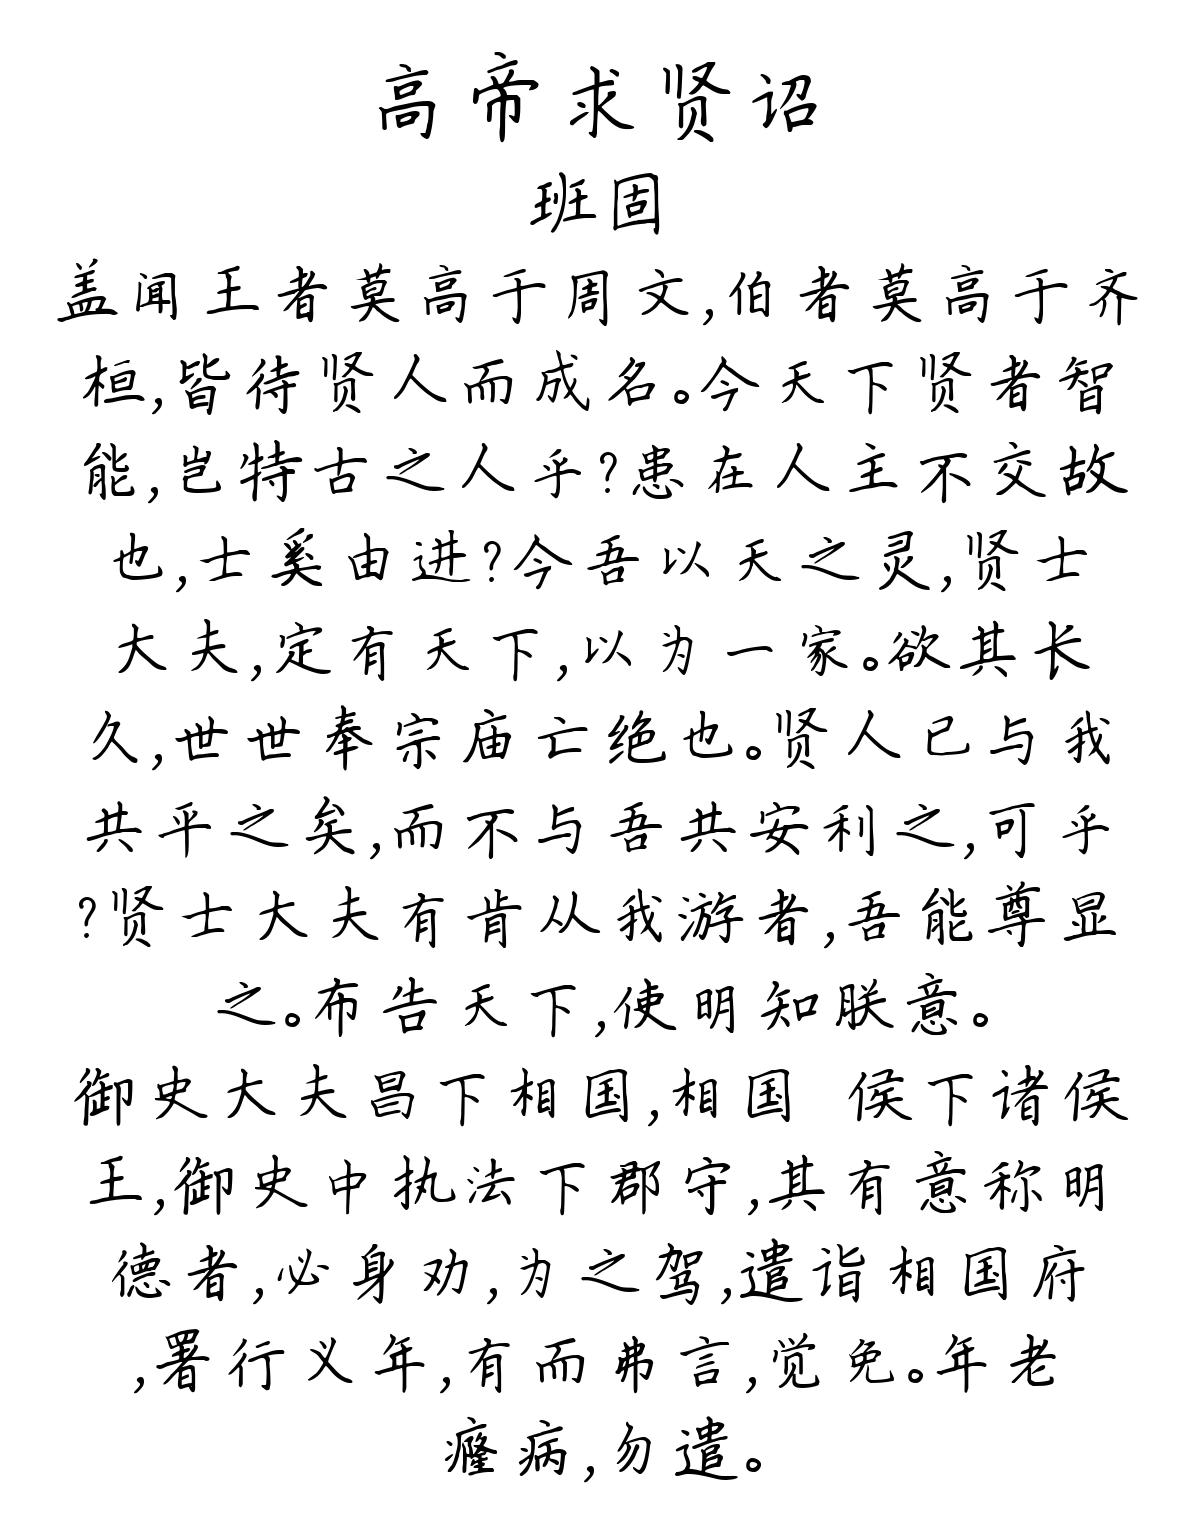 高帝求贤诏
班固
盖闻王者莫高于周文,伯者莫高于齐
桓,皆待贤人而成名。今天下贤者智
能,岂特古之人乎?患在人主不交故
也,士奚由进?今吾以天之灵,贤士
大夫,定有天下,以为一家。欲其长
久,世世奉宗庙亡绝也。贤人已与我
共平之矣,而不与吾共安利之,可乎
?贤士大夫有肯从我游者,吾能尊显
之。布告天下,使明知朕意。
御史大夫昌下相国,相国 侯下诸侯
王,御史中执法下郡守,其有意称明
德者,必身劝,为之驾,遣诣相国府
,署行义年,有而弗言,觉免。年老
癃病,勿遣。